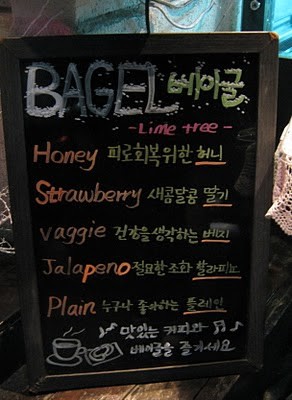 BAGEL 베이글
-Lime tree-
Honey 피로회복 위한 허니
Strawberry 새콤달콤 딸기
vaggie 건강을 생각하는 베지
Jalapeno 절묘한 조화 할라피뇨
Plain 누구나 좋아하는 플레인
맛있는 커피와
베이글을 즐기세요